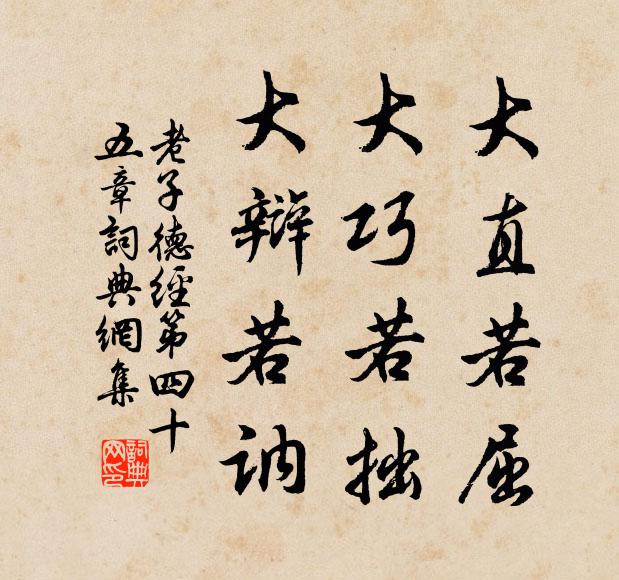 大直若屈
大巧若拙
大辯若訥
老子德經第四十
五章詞典網集
詞典
网印